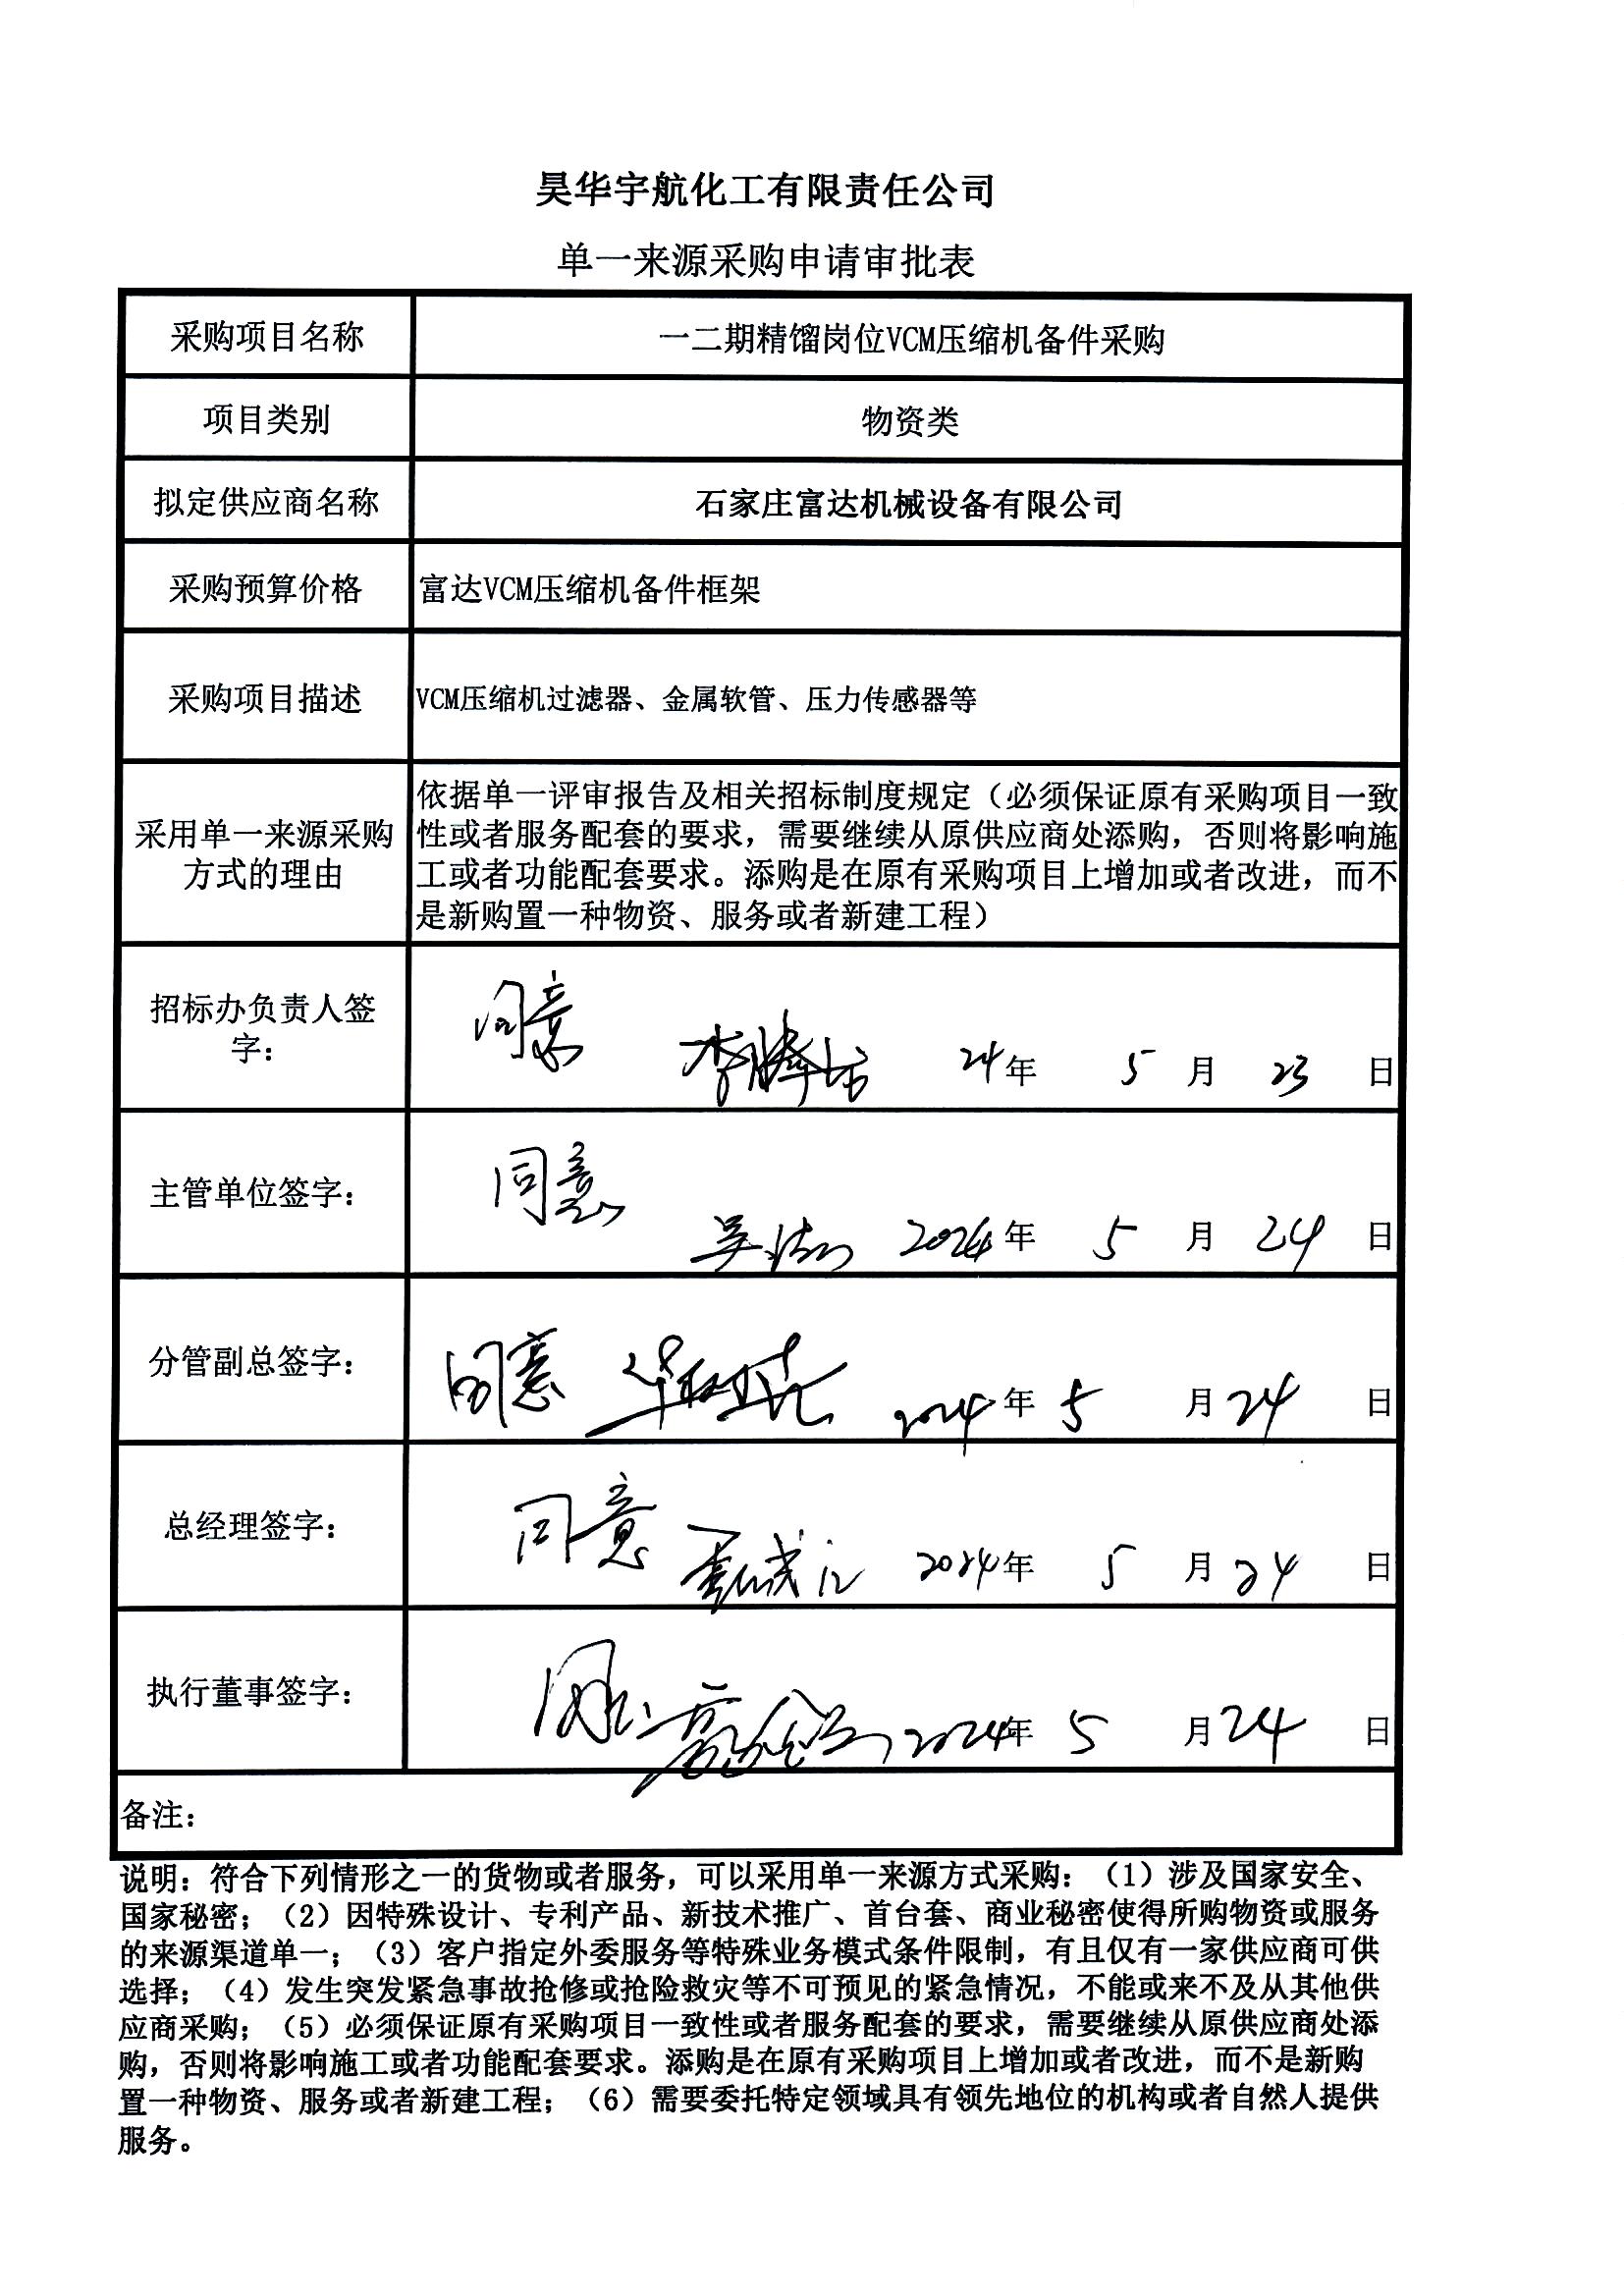 昊华宇航化工有限责任公司
单一来源采购申请审批表
采购项目名称 一二期精馏岗位VCM压缩机备件采购
项目类别 物资类
拟定供应商名称 石家庄富达机械设备有限公司
采购预算价格 富达VCM压缩机备件框架
采购项目描述 VCM压缩机过滤器、金属软管、压力传感器等
采用单一来源采购
方式的理由
依据单一评审报告及相关招标制度规定（必须保证原有采购项目一致
性或者服务配套的要求，需要继续从原供应商处添购，否则将影响施
工或者功能配套要求。添购是在原有采购项目上增加或者改进，而不
是新购置一种物资、服务或者新建工程）
招标办负责人签
字：
同意
24年 5月 23日
主管单位签字：
同意
2024年 5月 24日
分管副总签字：
同意
2024年 5月 24日
总经理签字：
同意
2024年 5月 24日
执行董事签字：
2024年 5月 24日
备注：
说明：符合下列情形之一的货物或者服务，可以采用单一来源方式采购：（1）涉及国家安全、
国家秘密；（2）因特殊设计、专利产品、新技术推广、首台套、商业秘密使得所购物资或服务
的来源渠道单一；（3）客户指定外委服务等特殊业务模式条件限制，有且仅有一家供应商可供
选择；（4）发生突发紧急事故抢修或抢险救灾等不可预见的紧急情况，不能或来不及从其他供
应商采购；（5）必须保证原有采购项目一致性或者服务配套的要求，需要继续从原供应商处添
购，否则将影响施工或者功能配套要求。添购是在原有采购项目上增加或者改进，而不是新购
置一种物资、服务或者新建工程；（6）需要委托特定领域具有领先地位的机构或者自然人提供
服务。